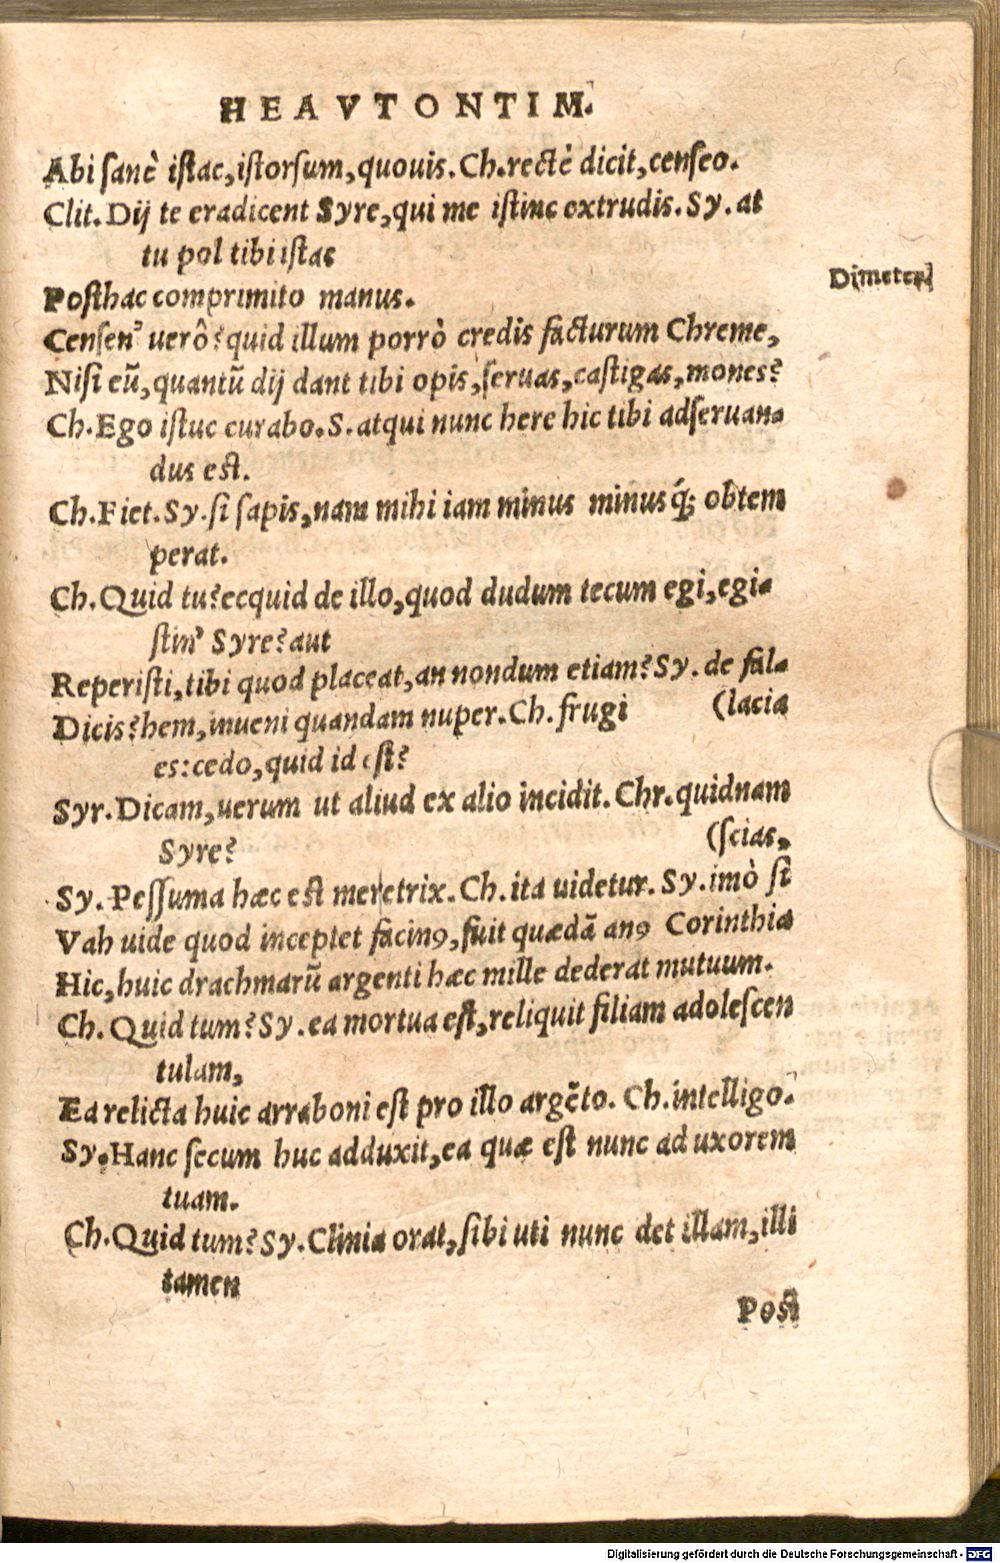 HEAVTONTIM.
Abi sanè istac, istorsum, quouis. Ch. rectè dicit, censeo.
Clit. Dij te eradicent Syre, qui me istinc extrudis. Sy. at
tu pol tibi istas
Dimeter
Posthac comprimito manus.
Censen' uerô? quid illum porrò credis facturum Chreme,
Nisi eū, quantū dij dant tibi opis, seruas, castigas, mones?
Ch. Ego istuc curabo. S. atqui nunc here hic tibi adseruan-
dus est.
Ch. Fiet. Sy. si sapis, nam mihi iam minus minusq́; obtem
perat.
Ch. Quid tu? ecquid de illo, quod dudum tecum egi, egi-
stin' Syre? aut
Reperisti, tibi quod placeat, an nondum etiam? Sy. de fal-
Dicis? hem, inueni quandam nuper. Ch. frugi (lacia
es: cedo, quid id est?
Syr. Dicam, uerum ut aliud ex alio incidit. Chr. quidnam
Syre? (scias,
Sy. Pessuma hæc est meretrix. Ch. ita uidetur. Sy. imò si
Vah uide quod inceptet facinꝯ, fuit quædā anꝯ Corinthia
Hic, huic drachmarū argenti hæc mille dederat mutuum.
Ch. Quid tum? Sy. ea mortua est, reliquit filiam adolescen
tulam,
Ea relicta huic arraboni est pro illo argēto. Ch. intelligo.
Sy. Hanc secum huc adduxit, ea quæ est nunc ad uxorem
tuam.
Ch. Quid tum? Sy. Clinia orat, sibi uti nunc det illam, illi
tamen
Post
Digitalisierung gefördert durch die Deutsche Forschungsgemeinschaft - DFG